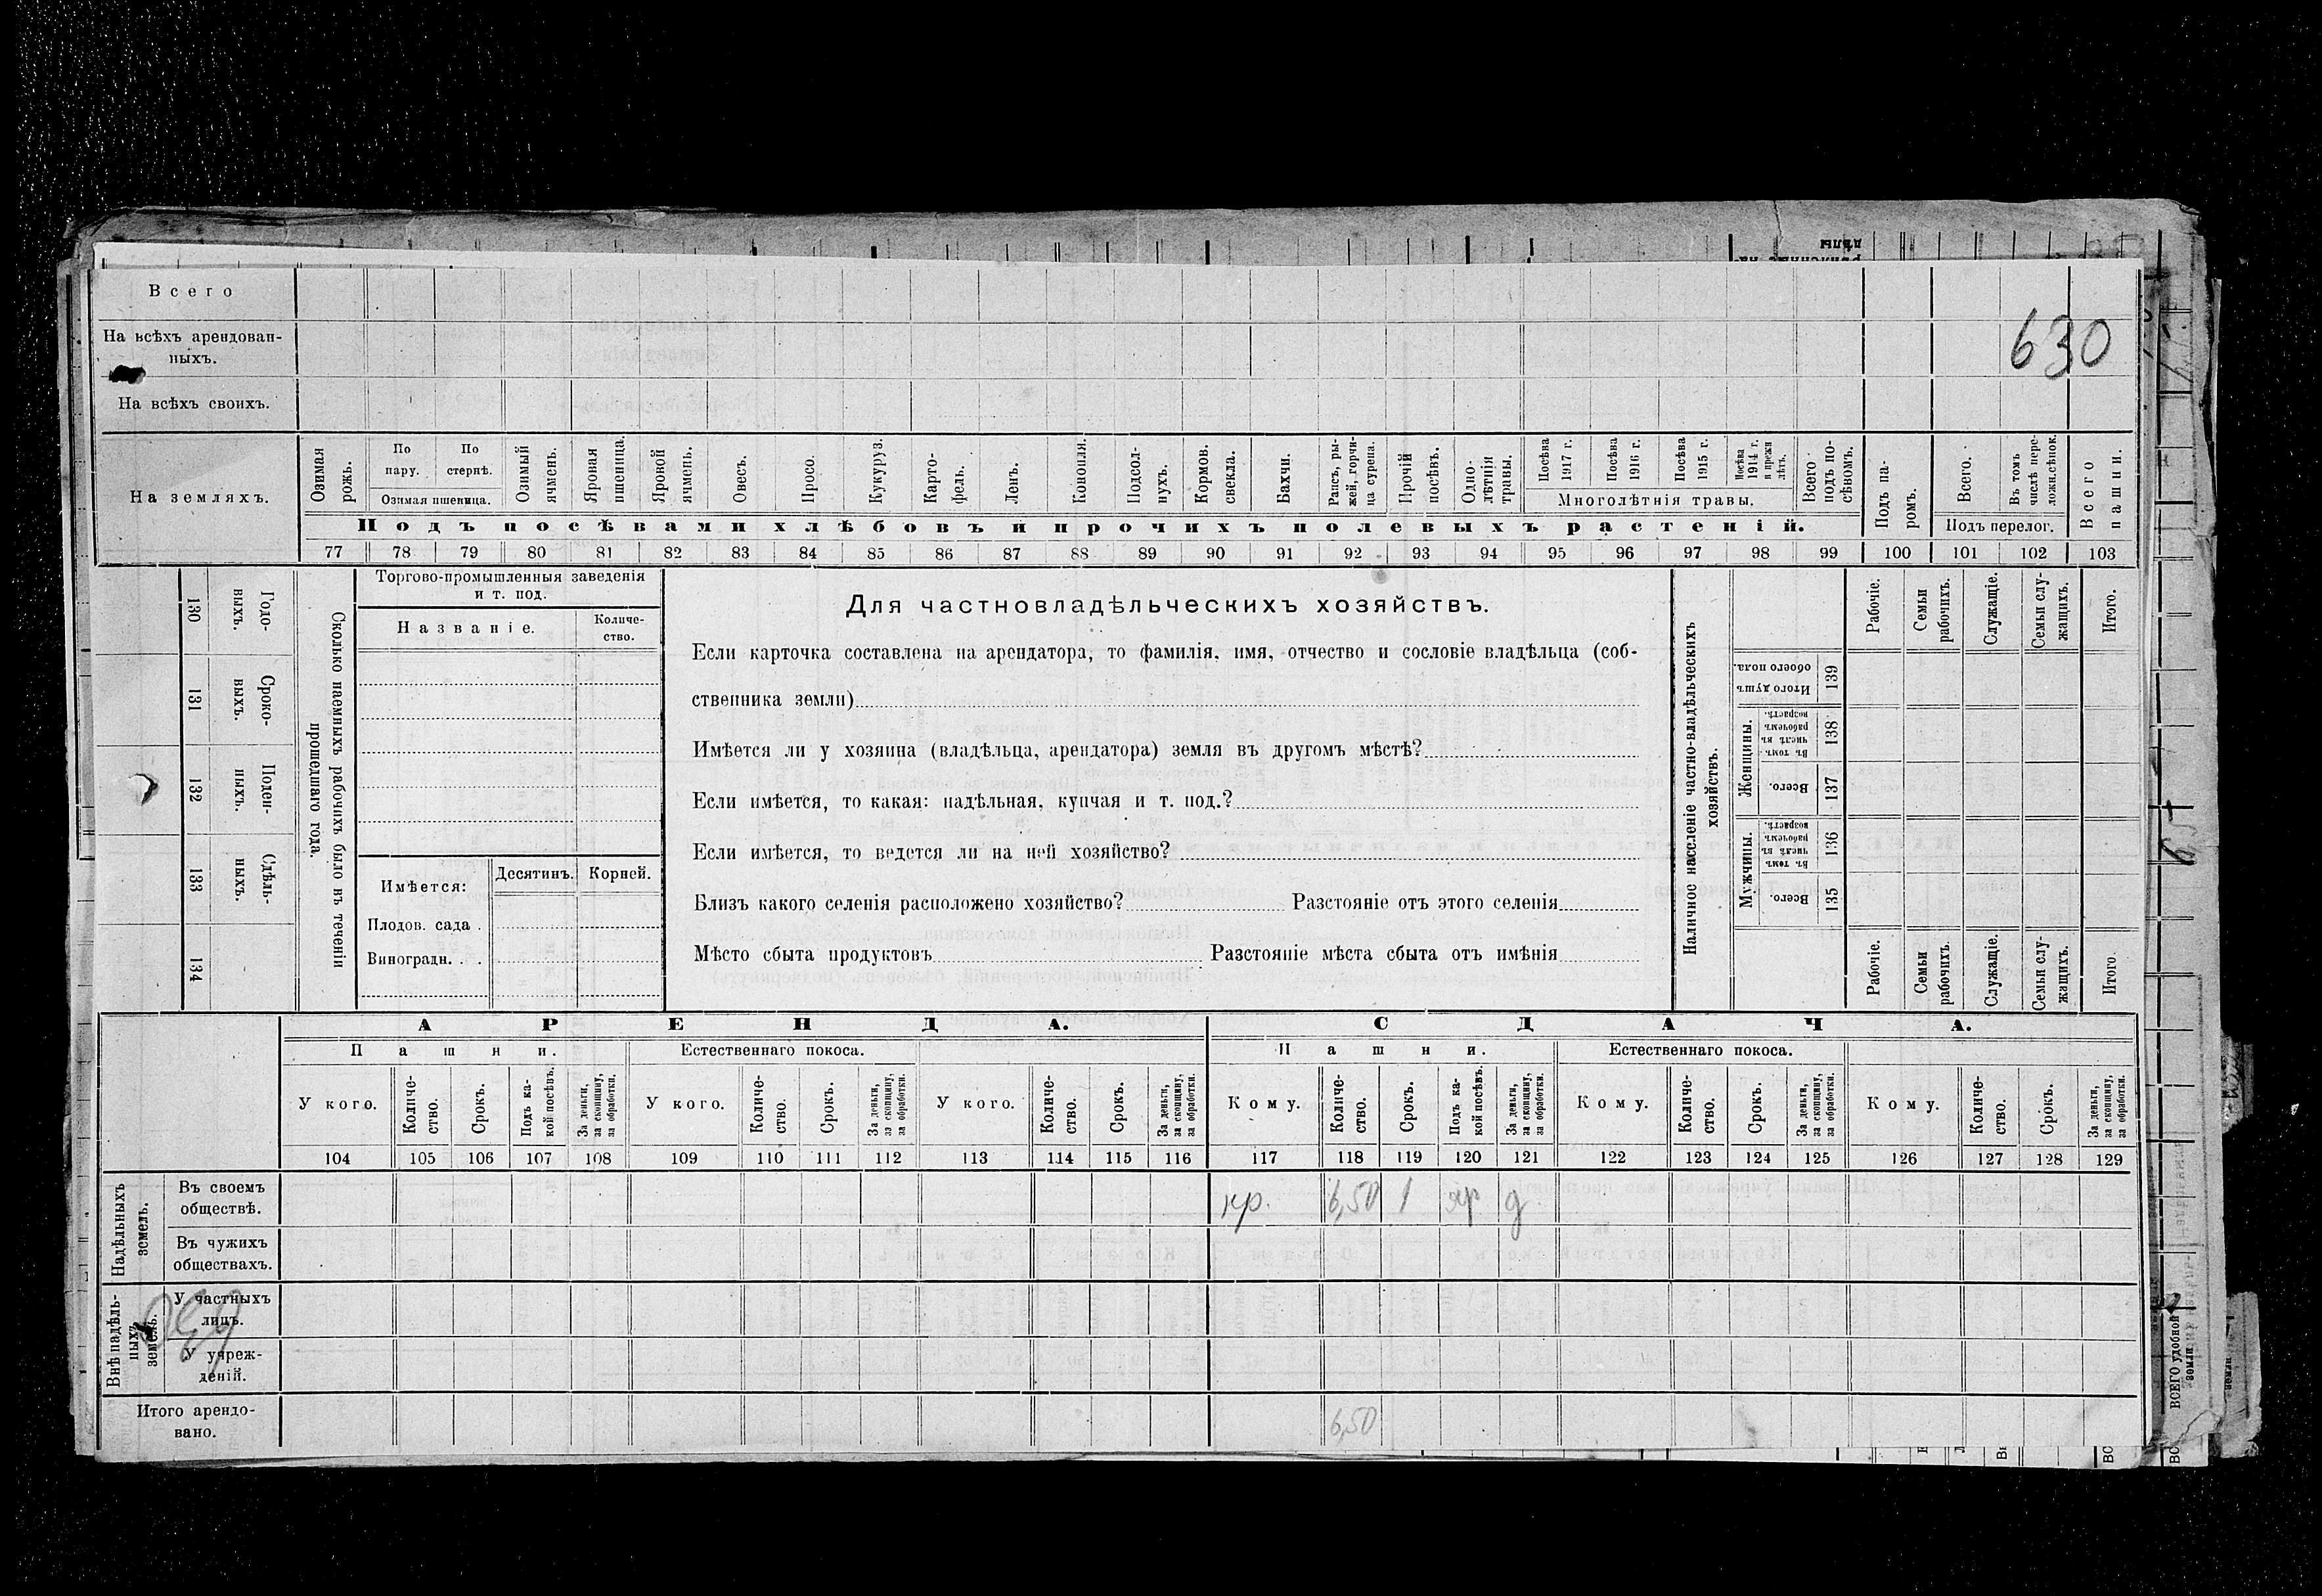 Всего
На всѣхъ арендован-
ныхъ.
630
На всѣхъ своихъ.
На земляхъ.
Озимая рожь.
По пару.
По стернѣ.
Озимая пшеница.
Озимый ячмень.
Яровая пшеница.
Яровой ячмень.
Овесъ.
Просо.
Кукуруз.
Карто-
фель.
Ленъ.
Конопля.
Подсол-
нухъ.
Кормов. свекла.
Бахчи.
Рапсъ, ры-
жей, горчи-
ца сурепа.
Прочій посѣвъ.
Одно-
лѣтнія травы.
Посѣва 1917 г.
Посѣва 1916 г.
Посѣва 1915 г.
Посѣва 1914 г. и прежн лѣтъ.
Многолѣтнія травы.
Всего подъ по-
сѣвомъ.
Подъ па-
ромъ.
Всего.
Въ томъ числѣ пере-
ложн.сѣнок.
Подъ перелог.
Всего пашни.
Подъ посѣвами хлѣбовъ и прочихъ полевыхъ растеній.
77 78 79 80 81 82 83 84 85 86 87 88 89 90 91 92 93 94 95 96 97 98 99 100 101 102 103
130 Годо-
выхъ.
131 Сроко-
выхъ.
132 Поден-
ныхъ.
133 Сдѣль-
ныхъ.
134
Сколько наемныхъ рабочихъ было въ теченіи
прошедшаго года.
Торгово-промышленныя заведенія
и т. под.
Названіе.
Количе-
ство.
Имѣется:
Десятинъ.
Корней.
Плодов. сада .
Виноградн. . .
Для частновладѣльческихъ хозяйствъ.
Если карточка составлена на арендатора, то фамилія, имя, отчество и сословіе владѣльца (соб-
ственника земли)
Имѣется ли у хозяина (владѣльца, арендатора) земля въ другомъ мѣстѣ?
Если имѣется, то какая: надѣльная, купчая и т. под.?
Если имѣется, то ведется ли на ней хозяйство?
Близъ какого селенія расположено хозяйство? Разстояніе отъ этого селенія
Мѣсто сбыта продуктовъ Разстояніе мѣста сбыта отъ имѣнія
Наличное населеніе частно-владѣльческихъ
хозяйствъ.
Рабочіе.
Семьи рабочихъ.
Служащіе.
Семьи слу-
жащихъ.
Итого.
Итого душъ обоего пола. 139
Женщины.
Въ томъ числѣ въ рабочемъ возрастѣ. 138
Всего. 137
Мужчины.
Въ томъ числѣ въ рабочемъ возрастѣ. 136
Всего. 135
Рабочіе.
Семьи рабочихъ.
Служащіе.
Семьи слу-
жащихъ.
Итого.
АРЕНДА.
СДАЧА.
Пашни.
Естественнаго покоса.
Пашни.
Естественнаго покоса.
У кого.
Количе-
ство.
Срокъ.
Подъ ка-
кой посѣвъ.
За деньги, за скопщину, за обработки.
У кого.
Количе-
ство.
Срокъ.
За деньги, за скопщину, за обработки.
У кого.
Количе-
ство.
Срокъ.
За деньги, за скопщину, за обработки.
Кому.
Количе-
ство.
Срокъ.
Подъ ка-
кой посѣвъ.
За деньги, за скопщину, за обработки.
Кому.
Количе-
ство.
Срокъ.
За деньги, за скопщину, за обработки.
Кому.
Количе-
ство.
Срокъ.
За деньги, за скопщину, за обработки.
104 105 106 107 108 109 110 111 112 113 114 115 116 117 118 119 120 121 122 123 124 125 126 127 128 129
Надѣльныхъ земель.
Въ своемъ
обществѣ.
кр. 6,50 1 яр д
Въ чужихъ
обществахъ.
Внѣ надѣль-
ныхъ земель.
У частныхъ
лицъ.
У учреж-
деній.
Итого арендо-
вано.
6,50
ВСЕГО удобной земли